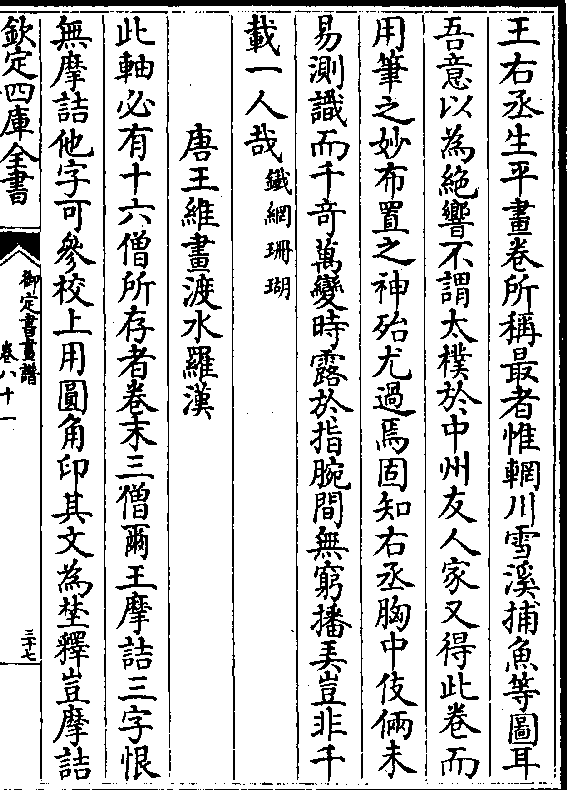 王右丞生平畫卷所稱最者惟輞川雪溪捕魚等圖耳
吾意以為絶響不謂太樸於中州友人家又得此卷而
用筆之妙布置之神殆尤過焉固知右丞胸中伎倆未
易測識而千奇萬變時露於指腕間無窮播美豈非千
載一人哉鐵網珊瑚
唐王維畫渡水羅漢
此軸必有十六僧所存者卷末三僧爾王摩詰三字恨
無摩詰他字可參校上用圓角印其文為埜釋豈摩詰
欽定四庫全書
御定書畫譜
卷八十一
三十七